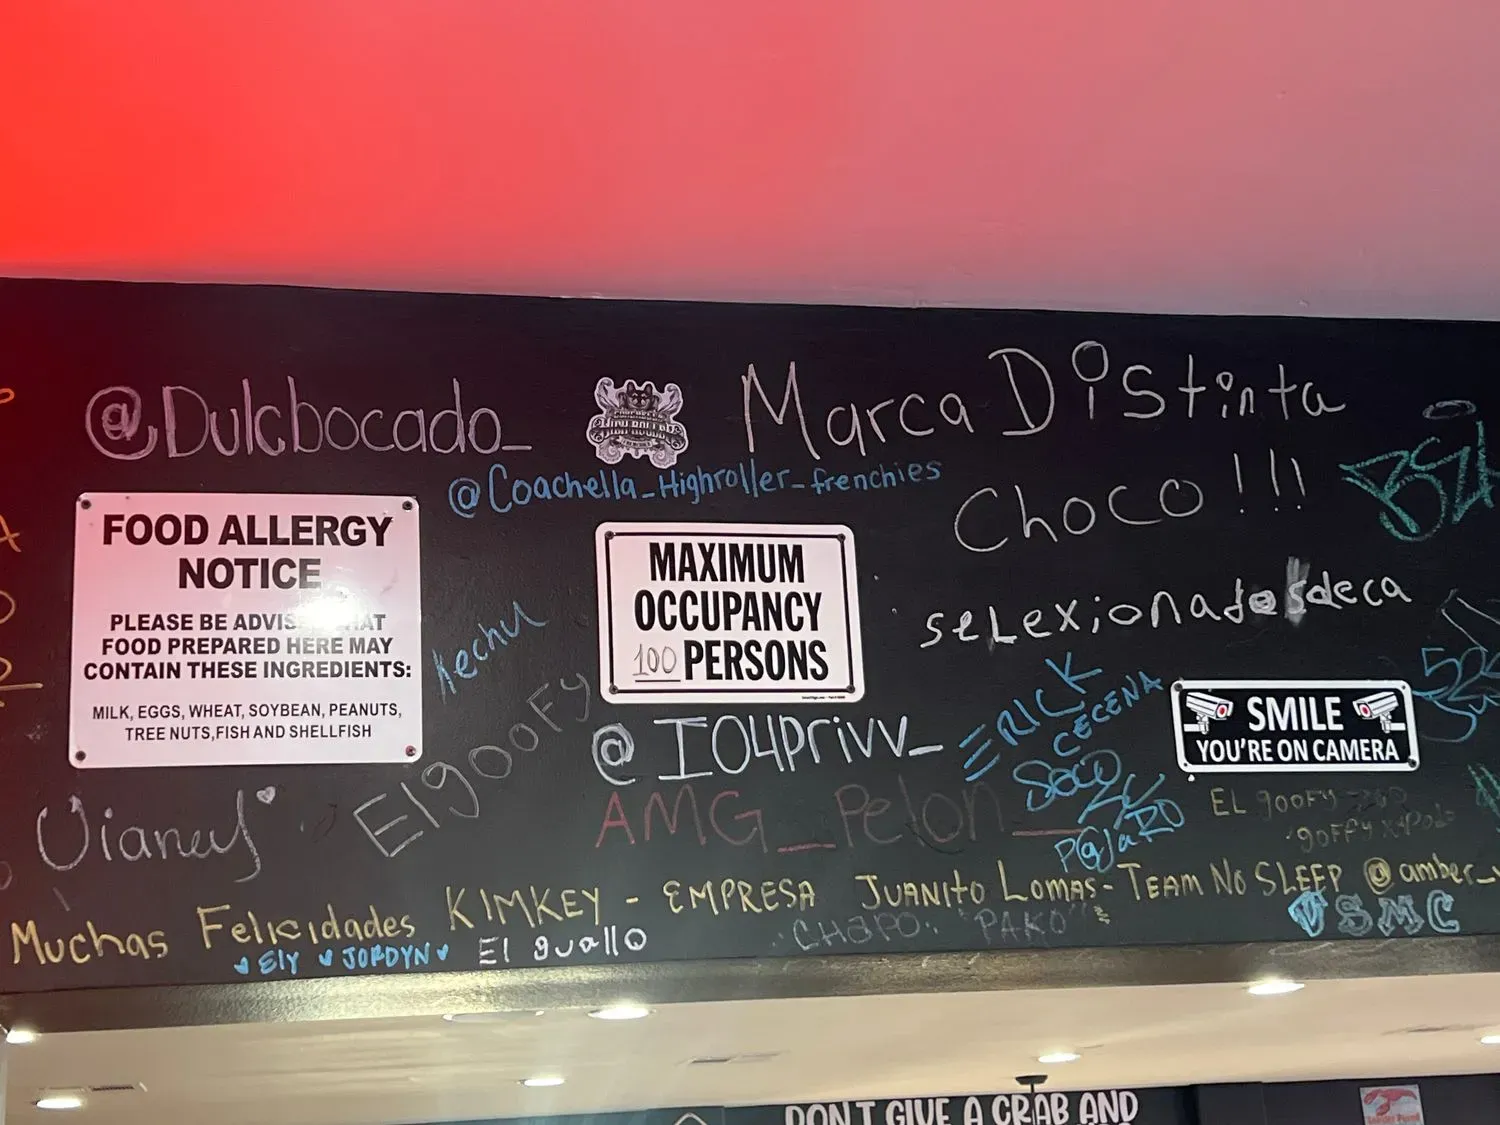 @Dulcbocado_
HIGH ROLLER
@Coachella_Highroller_frenchies
Marca Distinta
Choco!!!
FOOD ALLERGY
NOTICE
PLEASE BE ADVIS HAT
FOOD PREPARED HERE MAY
CONTAIN THESE INGREDIENTS:
MILK, EGGS, WHEAT, SOYBEAN, PEANUTS,
TREE NUTS, FISH AND SHELLFISH
MAXIMUM
OCCUPANCY
100 PERSONS
seLexionadosdeca
ERICK
CECENA
SMILE
YOU'RE ON CAMERA
@IO4Privv_
Elgoofy
AMG_Pelon_
P@jaRO
Vianey
EL goofy
Muchas Felicidades KIMKEY - EMPRESA JUANITO LOMAS - TEAM NO SLEEP @amber_
ELY JORDYN
El guallo
CHAPO: "PAKO"
VSMC
DON'T GIVE A CRAB AND